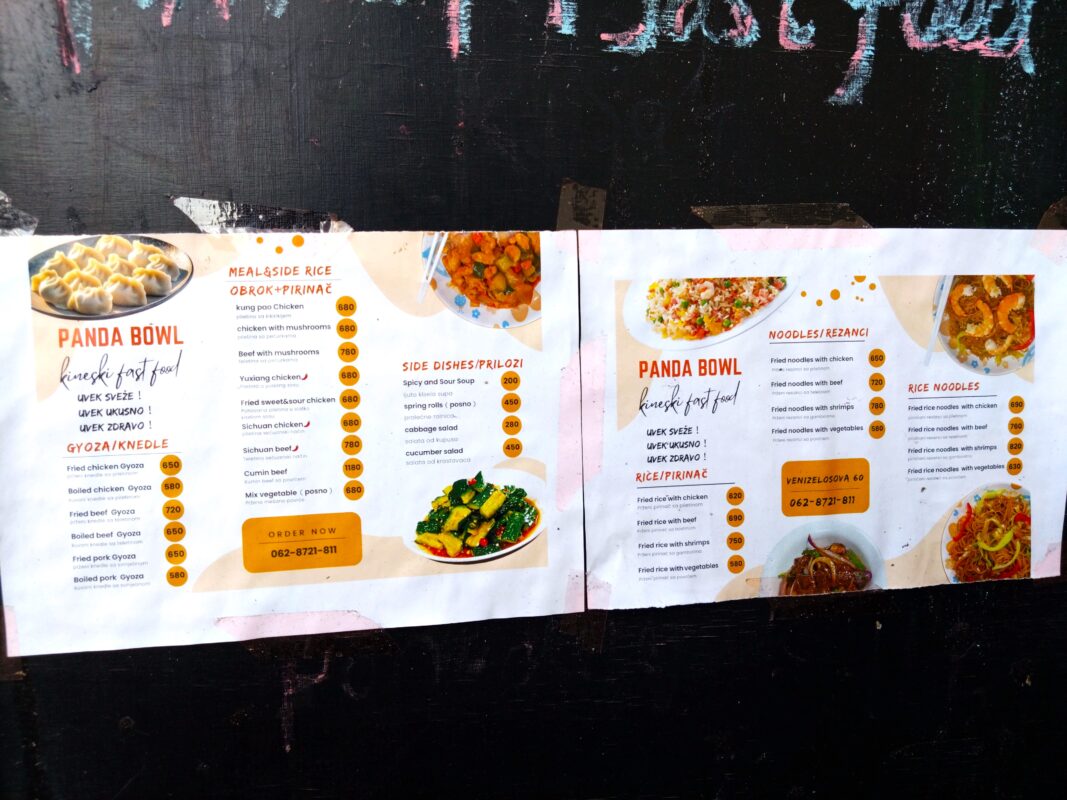 Fast food
PANDA BOWL
kineski fast food
UVEK SVEŽE !
UVEK UKUSNO !
UVEK ZDRAVO !
GYOZA/KNEDLE
Fried chicken Gyoza 650
Boiled chicken Gyoza 580
Fried beef Gyoza 720
Boiled beef Gyoza 650
Fried pork Gyoza 650
Boiled pork Gyoza 580
MEAL&SIDE RICE
OBROK+PIRINAČ
kung pao Chicken 680
chicken with mushrooms 680
Beef with mushrooms 780
Yuxiang chicken 680
Fried sweet&sour chicken 680
Sichuan chicken 680
Sichuan beef 780
Cumin beef 1180
Mix vegetable ( posno ) 680
ORDER NOW
062-8721-811
SIDE DISHES/PRILOZI
Spicy and Sour Soup 200
ljuto kisela supa
spring rolls ( posno ) 450
prolećne rolnice
cabbage salad 280
salata od kupusa
cucumber salad 450
salata od krastavaca
PANDA BOWL
kineski fast food
UVEK SVEŽE !
UVEK UKUSNO !
UVEK ZDRAVO !
RICE/PIRINAČ
Fried rice with chicken 620
Prženi pirinač sa piletinom
Fried rice with beef 690
Prženi pirinač sa teletinom
Fried rice with shrimps 750
Prženi pirinač sa gamborima
Fried rice with vegetables 580
Prženi pirinač sa povrćem
NOODLES/REZANCI
Fried noodles with chicken 650
Prženi rezanci sa piletinom
Fried noodles with beef 720
Prženi rezanci sa teletinom
Fried noodles with shrimps 780
Fried noodles with vegetables 580
Prženi rezanci sa povrćem
VENIZELOSOVA 60
062-8721-811
RICE NOODLES
Fried rice noodles with chicken 690
Fried rice noodles with beef 760
Fried rice noodles with shrimps 820
Fried rice noodles with vegetables 630